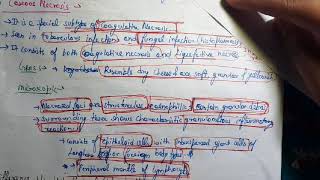 Caseous Necrosis :
→ It is a special subtype of Coagulative Necrosis
→ Seen in Tuberculous infections and fungal infection (histoplasmosis)
→ It consists of both Coagulative necrosis and liquefactive necrosis
Gross → Resemble dry cheese & are soft, granular & yellowish
Microscopic
→ Necrosed foci are structureless, eosinophilic & contain granular debris
→ Surrounding tissue shows characteristic granulomatous inflammatory reaction
→ consists of epithelioid cells with interspersed giant cells of
Langhans or foreign body type &
→ Peripheral mantle of lymphocytes